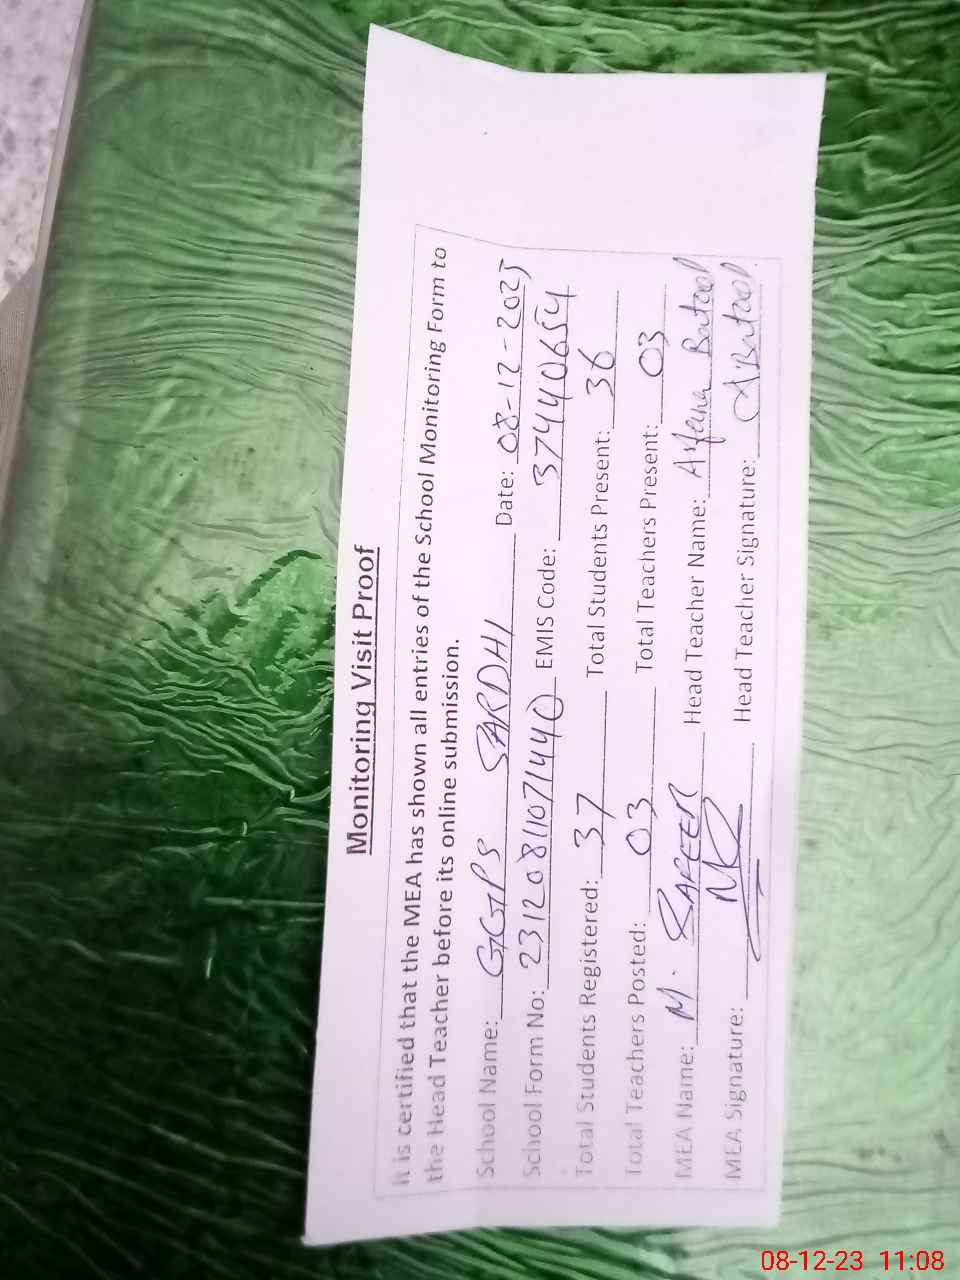 Monitoring Visit Proof
It is certified that the MEA has shown all entries of the School Monitoring Form to
the Head Teacher before its online submission.
School Name: GGPS SARDHI Date: 08-12-2025
School Form No: 23120811071440 EMIS Code: 37440654
Total Students Registered: 37 Total Students Present: 36
Total Teachers Posted: 03 Total Teachers Present: 03
MEA Name: M. SAFEER Head Teacher Name: Batool
MEA Signature: Head Teacher Signature: ABatool
08-12-23 11:08